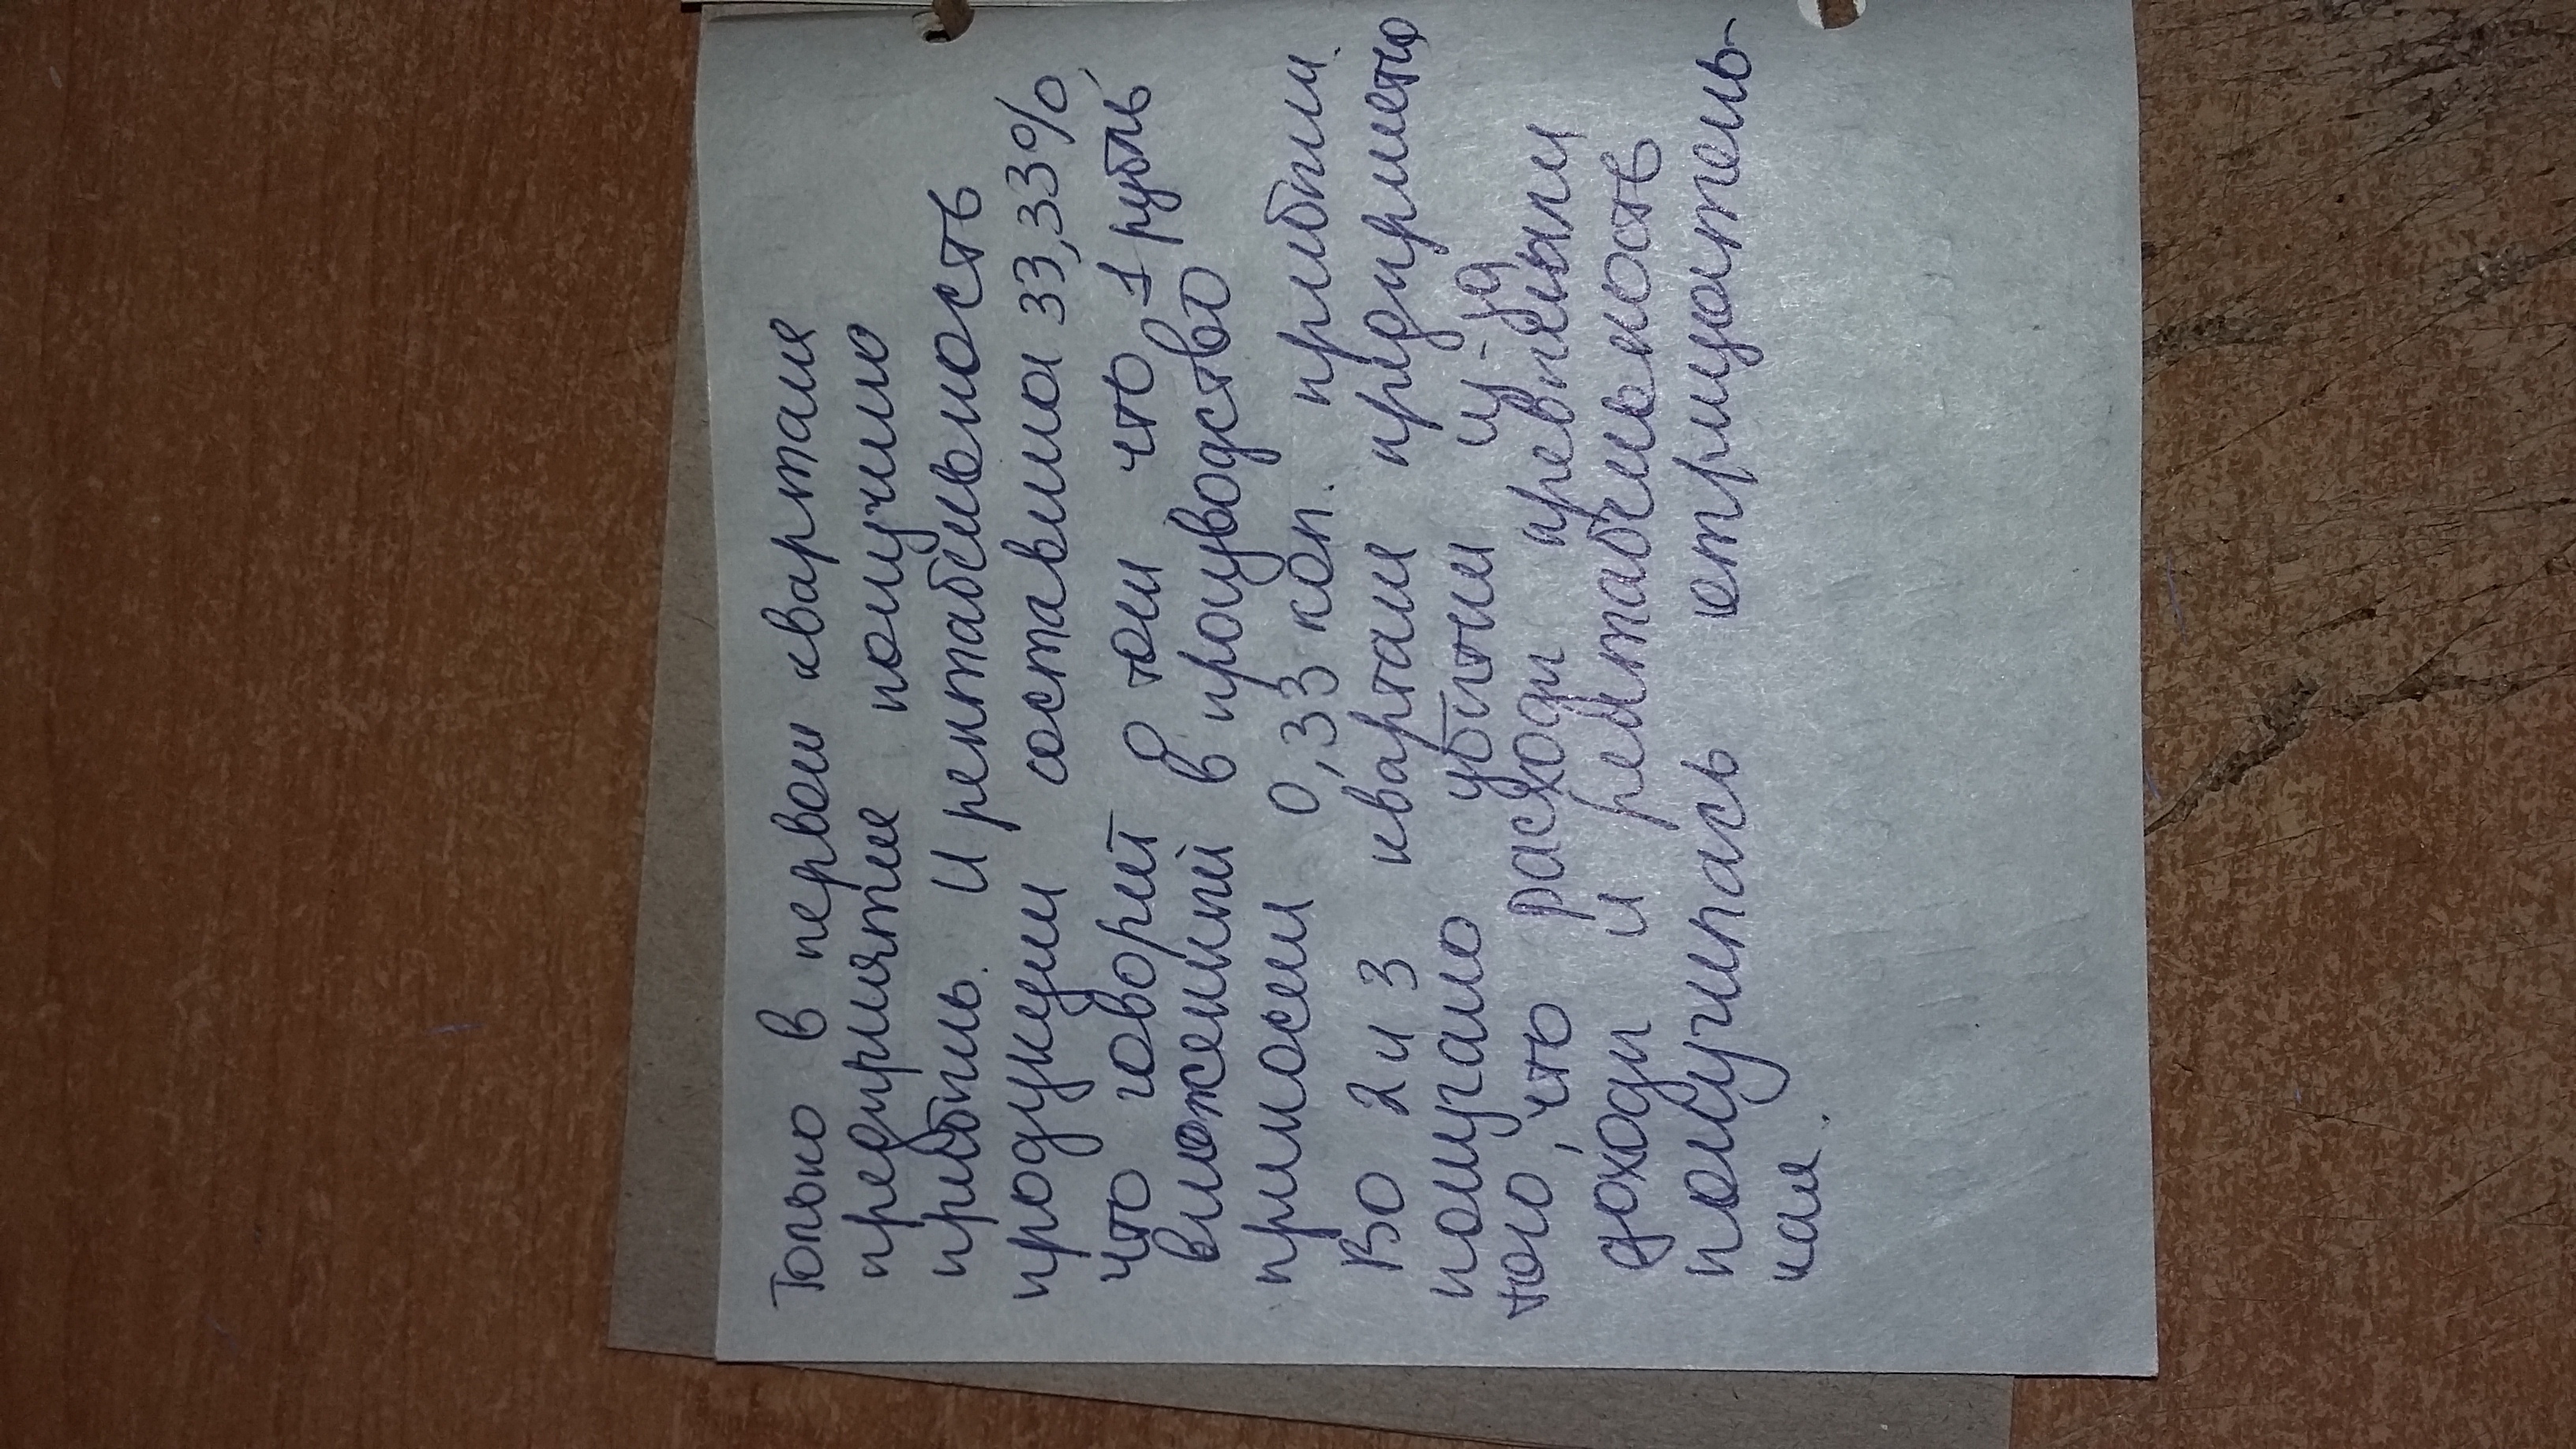 Только в первом квартале
предприятие получило
прибыль. И рентабельность
продукции составила 33,33%,
что говорит о том что 1 рубль
вложенный в производство
приносит 0,33 коп. прибыли.
Во 2 и 3 квартале предприятие
получало убытки из-за
того, что расходы превышали
доходы и рентабельность
получилась отрицатель-
ная.